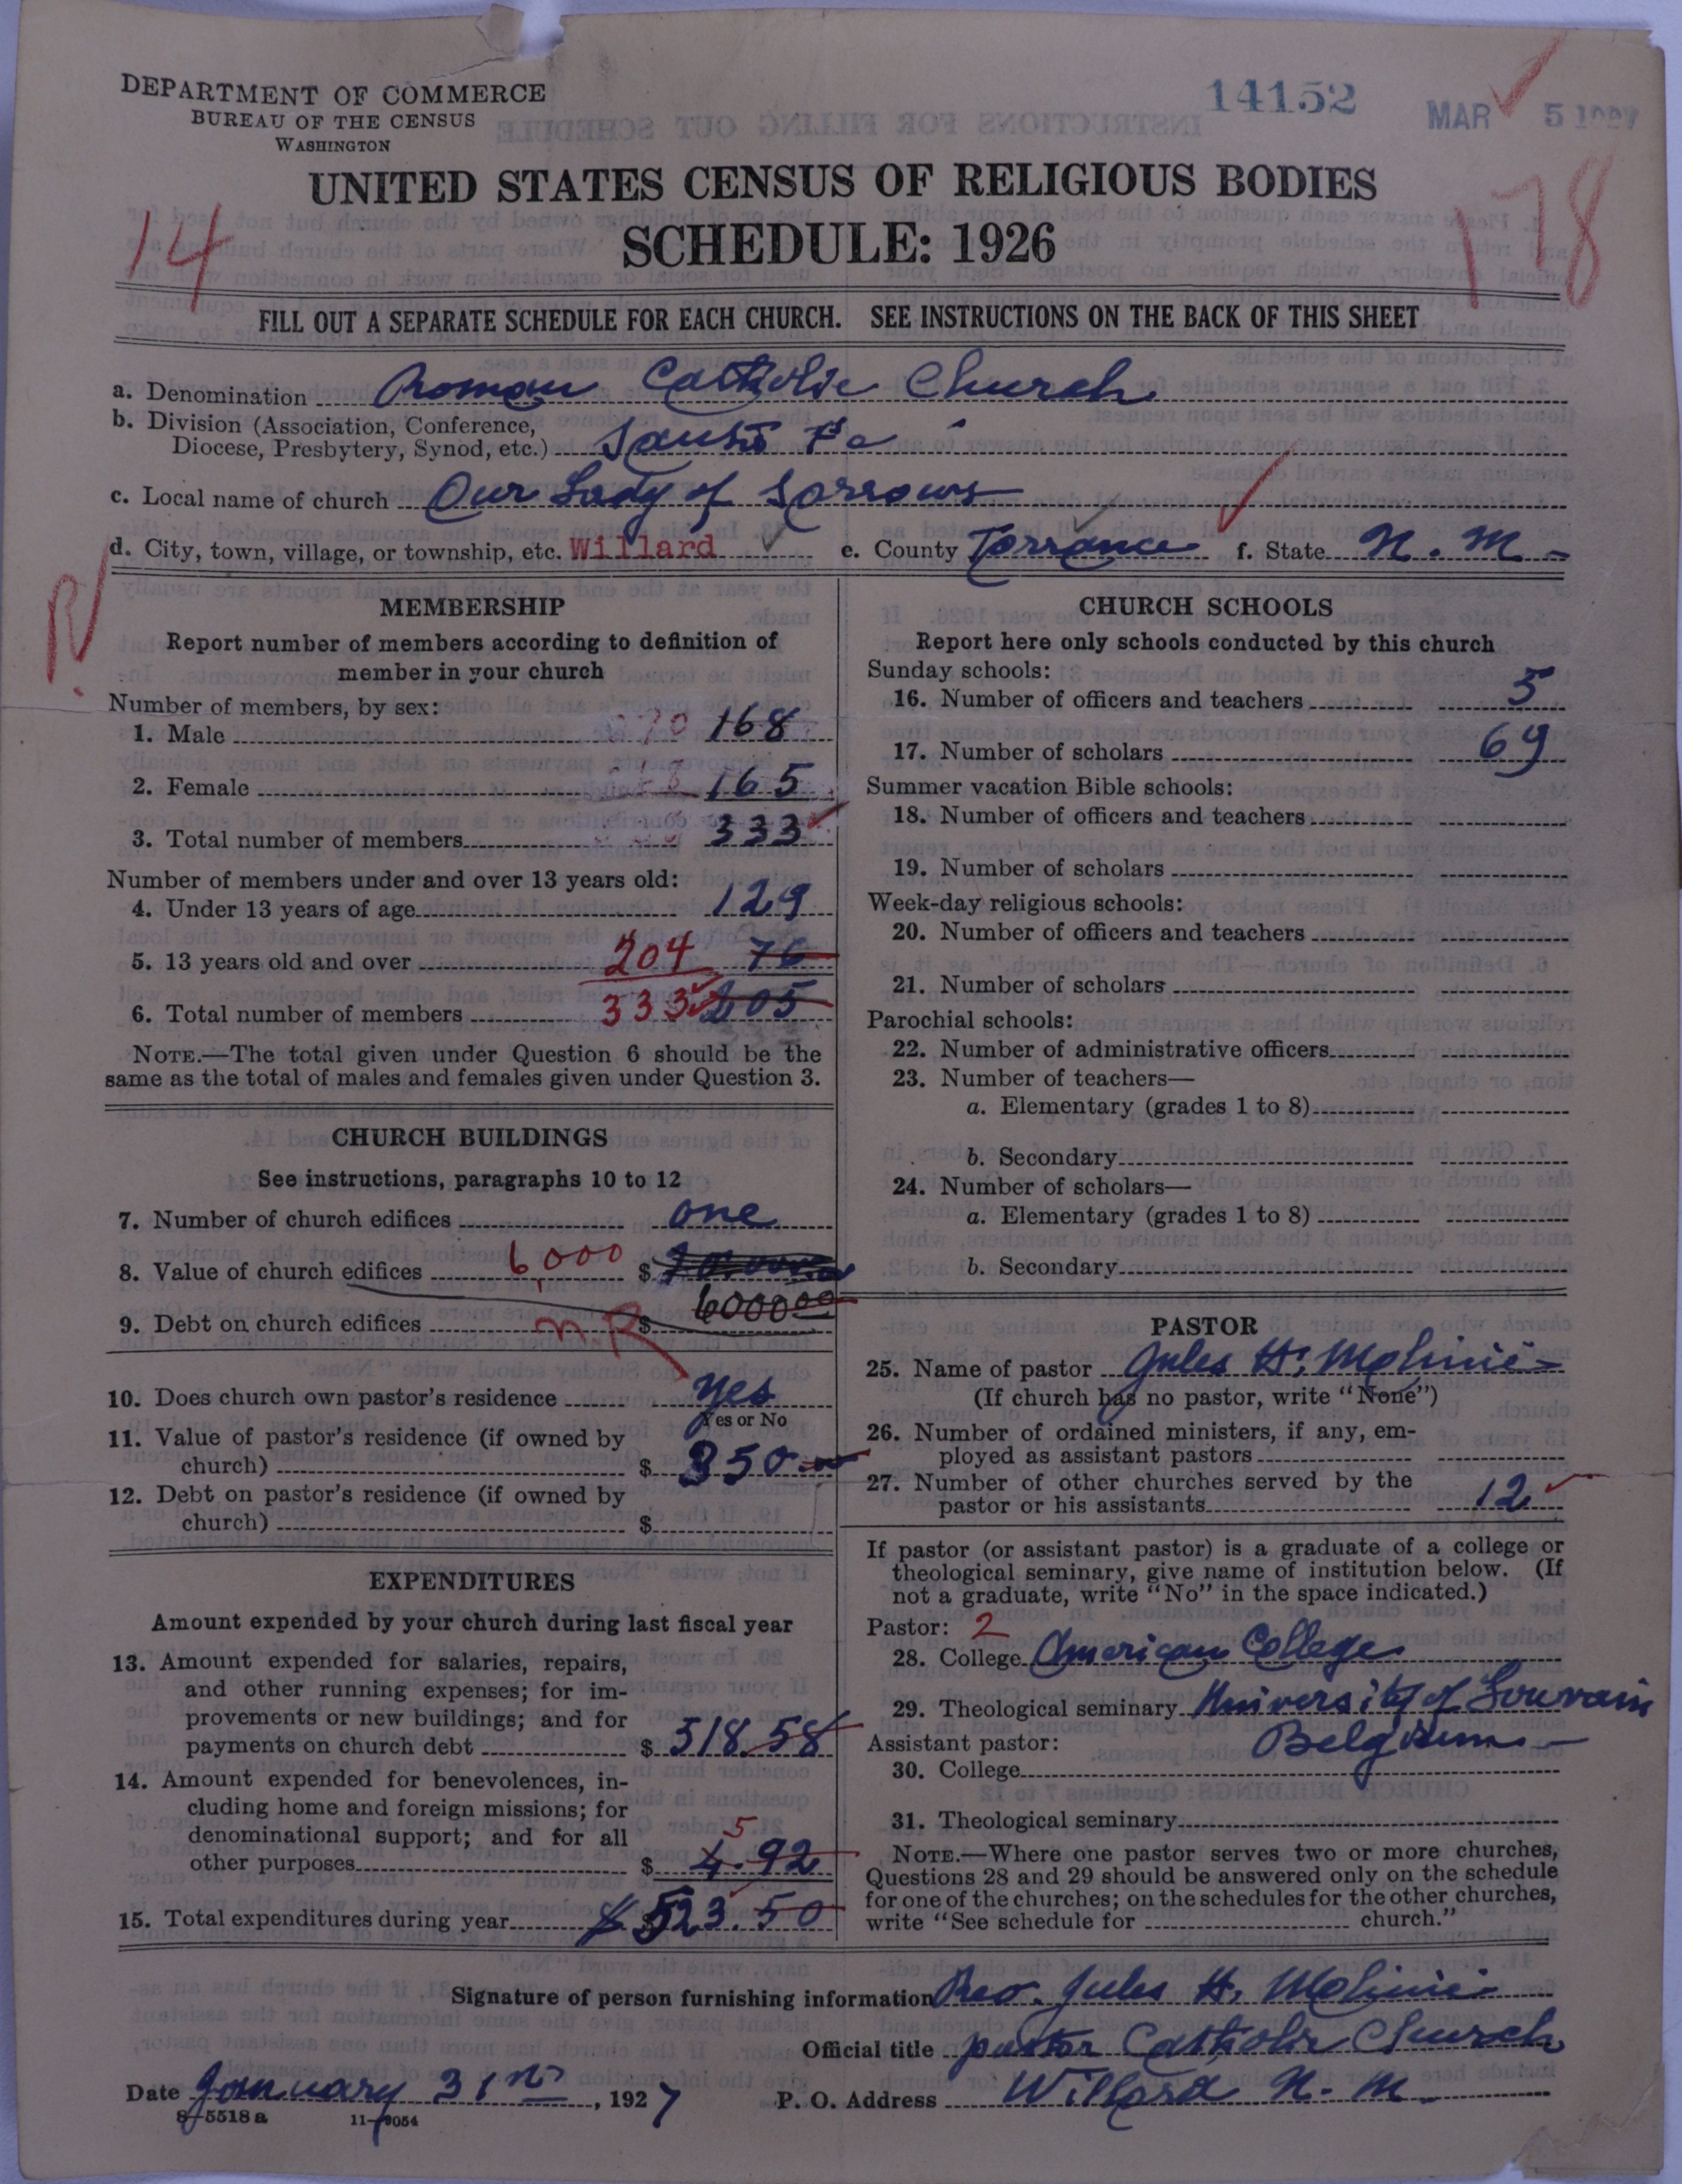 DEPARTMENT OF COMMERCE
BUREAU OF THE CENSUS
WASHINGTON
14152
MAR 5 1927
UNITED STATES CENSUS OF RELIGIOUS BODIES
SCHEDULE: 1926
14
178
FILL OUT A SEPARATE SCHEDULE FOR EACH CHURCH. SEE INSTRUCTIONS ON THE BACK OF THIS SHEET
a. Denomination Roman Catholic Church
b. Division (Association, Conference,
Diocese, Presbytery, Synod, etc.) Santa Fe
c. Local name of church Our Lady of Sorrows
d. City, town, village, or township, etc. Willard e. County Torrance f. State N. M.
R
MEMBERSHIP
Report number of members according to definition of
member in your church
Number of members, by sex:
1. Male 168
2. Female 165
3. Total number of members 333
Number of members under and over 13 years old:
4. Under 13 years of age 129
5. 13 years old and over 204 76
6. Total number of members 333 205
NOTE.—The total given under Question 6 should be the
same as the total of males and females given under Question 3.
CHURCH BUILDINGS
See instructions, paragraphs 10 to 12
7. Number of church edifices one
8. Value of church edifices 6,000 $
6000 00
9. Debt on church edifices nR $
10. Does church own pastor's residence yes
Yes or No
11. Value of pastor's residence (if owned by
church) $ 350.00
12. Debt on pastor's residence (if owned by
church) $
EXPENDITURES
Amount expended by your church during last fiscal year
13. Amount expended for salaries, repairs,
and other running expenses; for im-
provements or new buildings; and for
payments on church debt $ 518.58
14. Amount expended for benevolences, in-
cluding home and foreign missions; for
denominational support; and for all
other purposes $ 4.92
5
15. Total expenditures during year $ 523.50
CHURCH SCHOOLS
Report here only schools conducted by this church
Sunday schools:
16. Number of officers and teachers 5
17. Number of scholars 69
Summer vacation Bible schools:
18. Number of officers and teachers
19. Number of scholars
Week-day religious schools:
20. Number of officers and teachers
21. Number of scholars
Parochial schools:
22. Number of administrative officers
23. Number of teachers—
a. Elementary (grades 1 to 8)
b. Secondary
24. Number of scholars—
a. Elementary (grades 1 to 8)
b. Secondary
PASTOR
25. Name of pastor Jules H. Molinié
(If church has no pastor, write "None")
26. Number of ordained ministers, if any, em-
ployed as assistant pastors
27. Number of other churches served by the
pastor or his assistants 12
If pastor (or assistant pastor) is a graduate of a college or
theological seminary, give name of institution below. (If
not a graduate, write "No" in the space indicated.)
Pastor: 2
28. College American College
29. Theological seminary University of Louvain
Assistant pastor: Belgium
30. College
31. Theological seminary
NOTE.—Where one pastor serves two or more churches,
Questions 28 and 29 should be answered only on the schedule
for one of the churches; on the schedules for the other churches,
write "See schedule for church."
Signature of person furnishing information Rev. Jules H. Molinié
Official title pastor Catholic Church
Date January 31st, 1927 P. O. Address Willard N. M.
8—5518 a 11—9054